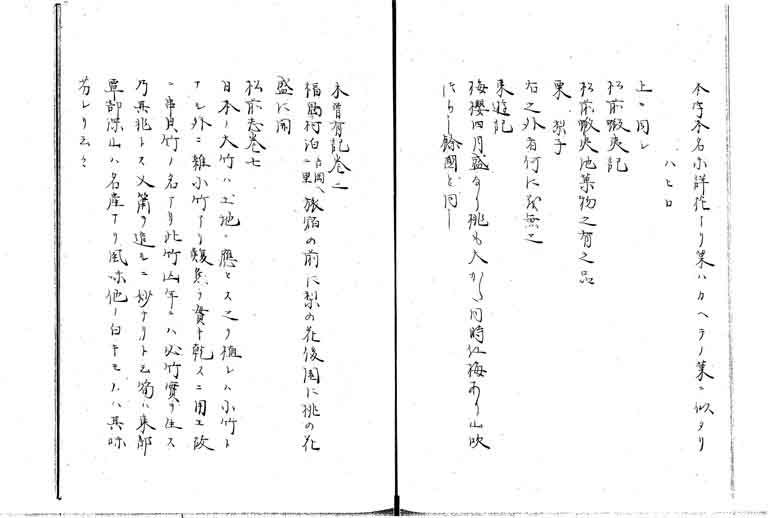 本字本名不詳花アリ葉ハカヘラノ葉ニ似タリ
ハヒロ
上ニ同シ
松前蝦夷記
松前蝦夷地菓物之有之品
栗 梨子
右之外者何に而も無之
東遊記
梅櫻四月盛なり桃も大かた同時紅梅あり山吹
つゝし餘國と同し
木曽有記巻二
福島村泊 旅宿の前に梨の花後園に桃の花
盛に開
松前志巻七
日本ノ大竹ハ土地ニ應セス之ヲ植レハ小竹ト
ナル外ニ雜小竹アリ 貫キ乾スニ用ユ故
ニ串貝竹ノ名アリ此竹凶年ニハ必竹實ヲ生ス
乃其兆トス又簫ヲ造ルニ妙ナリト云筍ハ東部
西部深山ハ名産アリ風味他ノ白キモノハ其味
劣レリ云々